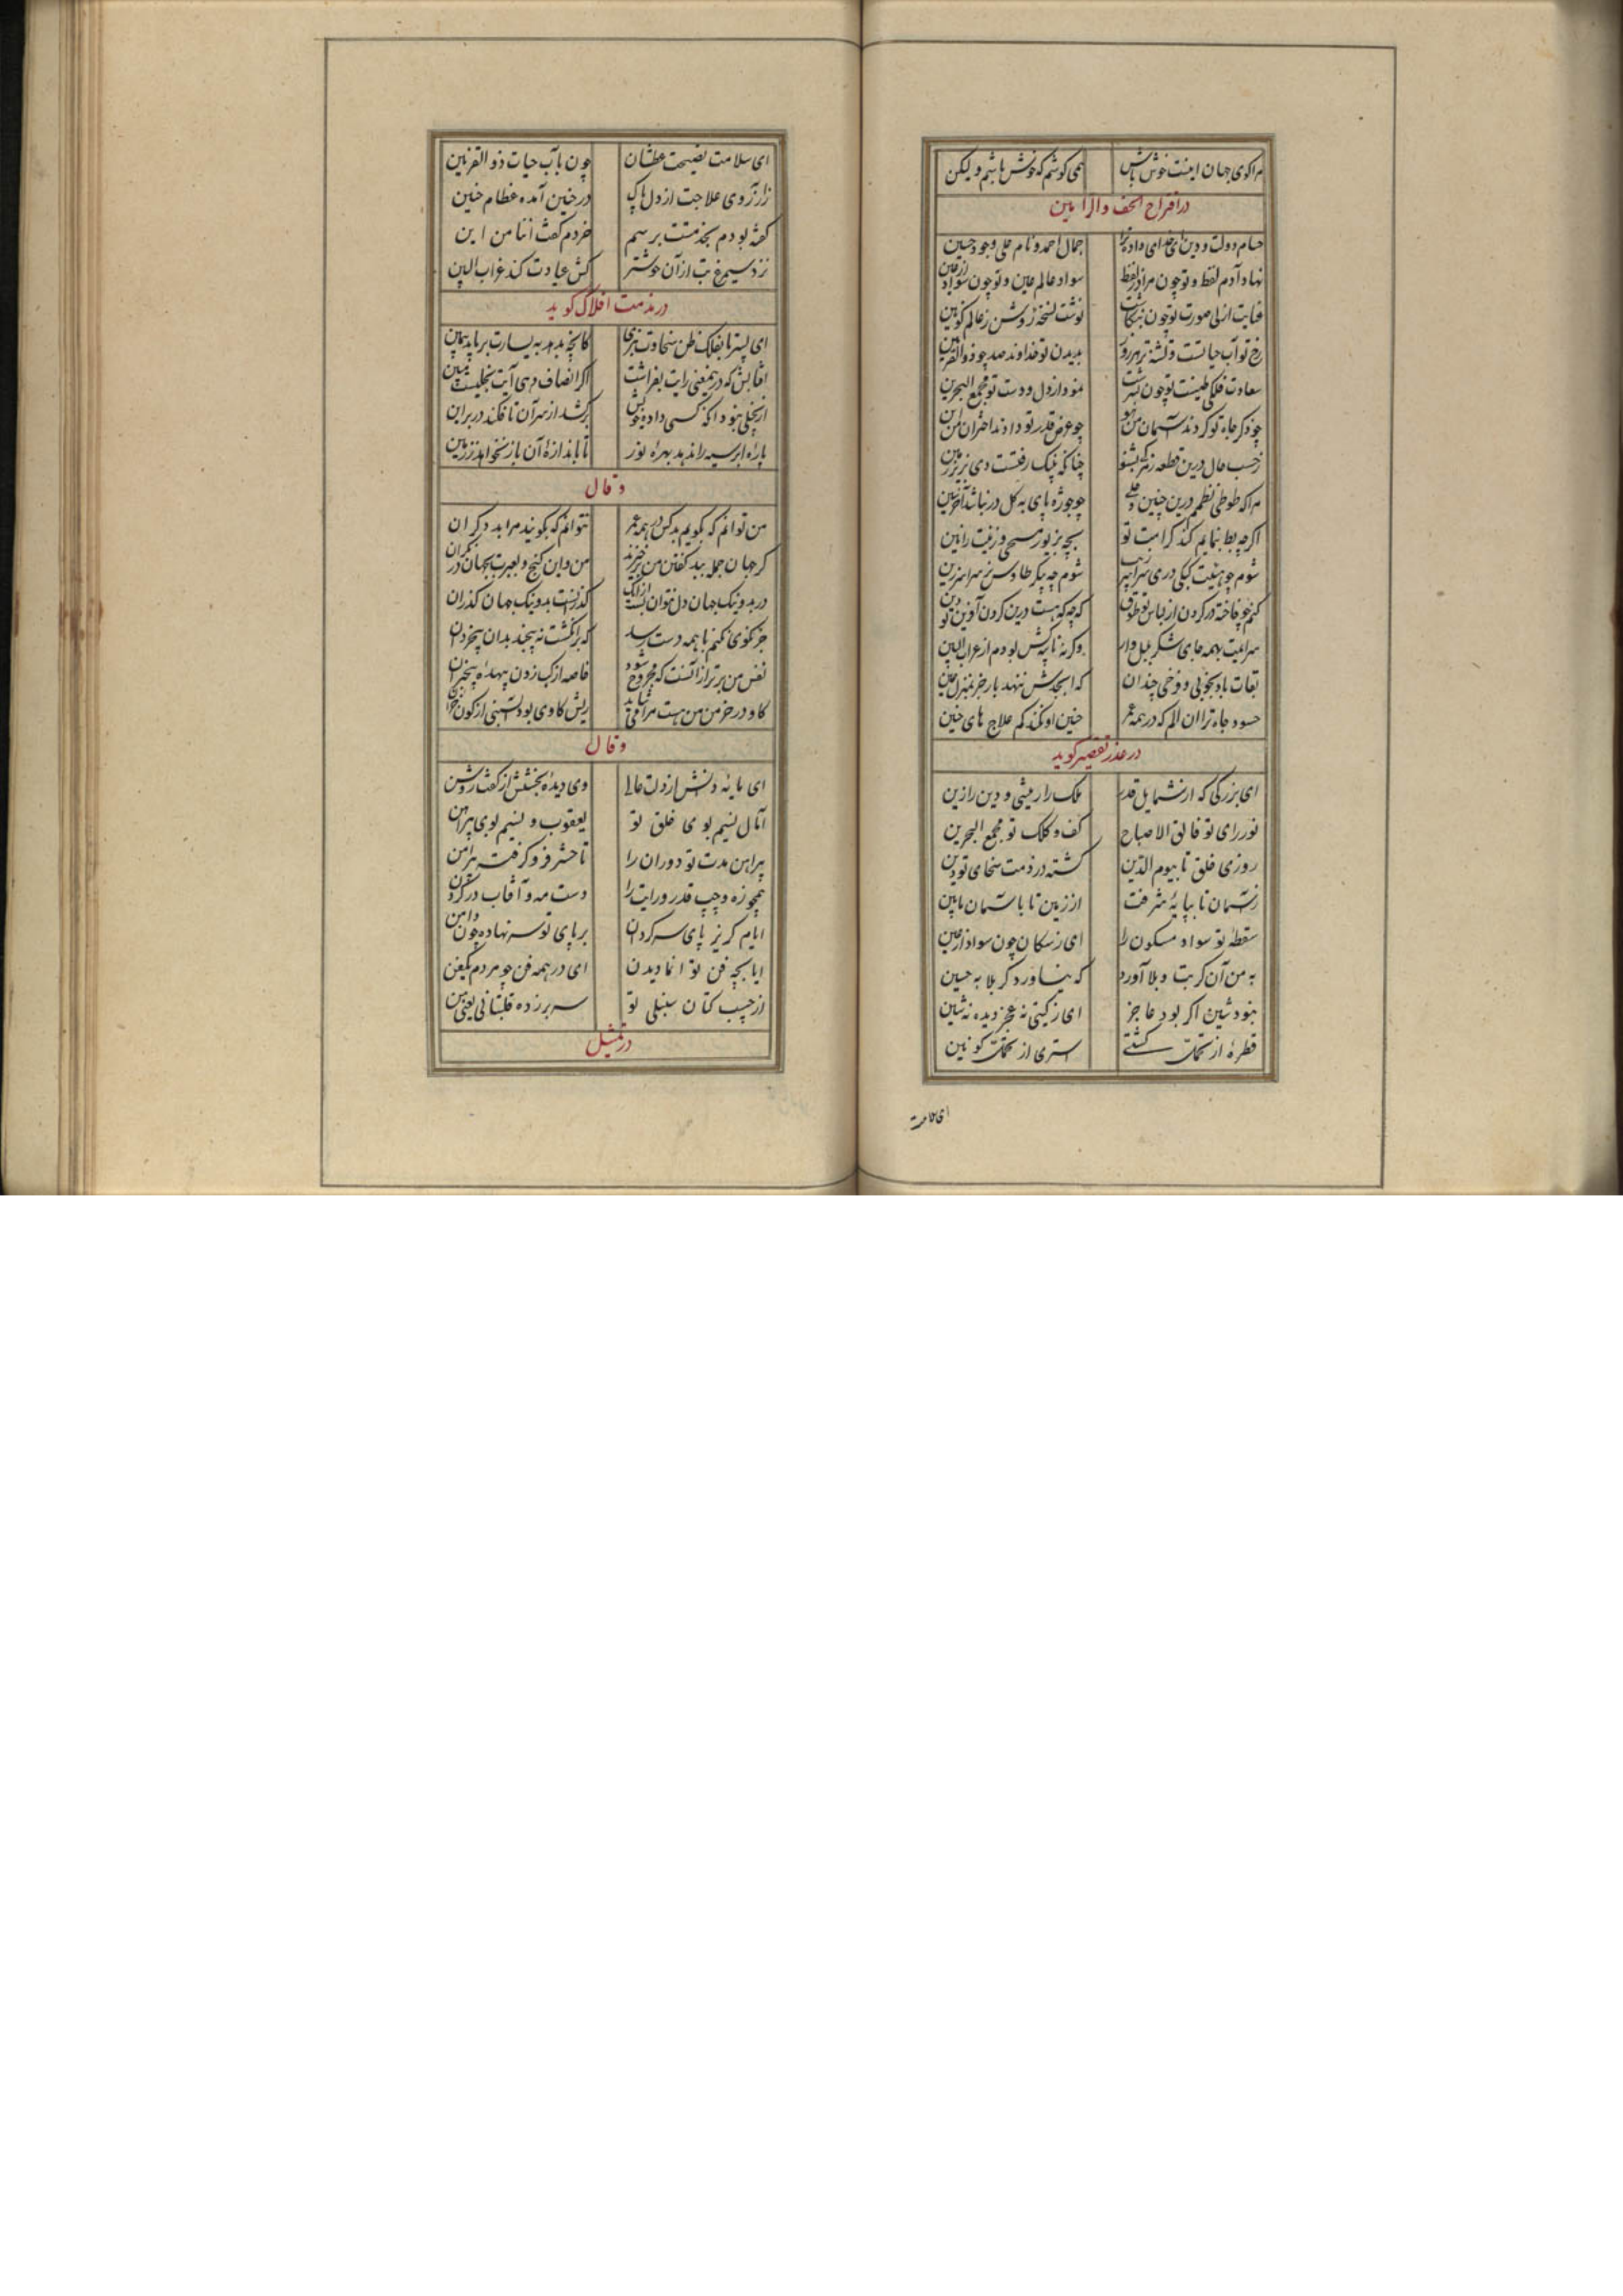 مرا کوی جهان اینت خوش باش همی کوشم که خوش باشم و لیکن
در اقراح الخف و الرا بین
حسام دولت و دین ای خدای داده ترا جمال احمد و نام علی و جود حسین
نهاد آدم لفظ و تو چون مراد ز لفظ سواد عالم عین و تو چون سواد از عین
عنایت ازلی صورت تو چون بنکاشت نوشت نسخه روشن ز عالم کونین
رخ تو آب حیاتست و تشنه تر هر روز بدیدن تو خداوند صد چو ذوالقرنین
سعادت فلکی طینت تو چون بسرشت نمود از دل و دست تو مجمع البحرین
چو ذکر جاه تو کردند آسمان من هو چو عرض قدر تو دادند اختران من این
ز حسب حال درین قطعه رمزکی بشنو چنانکه پیک رفتست دی بزیر زمین
مرا که طوطی نظمم درین چنین وحلی چو جوژه پای به کل در نباشد آخر شین
اکر چو بط بنمایم کند کرامت تو بچه بزیور مسحی و زینت رانین
شوم چو هیئت کبکی دری سراپا شوم چو پیکر طاوس نر سراسر زین
کنم چو فاخته در کردن از لباس تو طوق کرچه که هست درین کردن آوازین تو دین
سرایمت بهمه جای شکر بلبل وار وکرنه ناپه کش بودم از غراب البین
بقات باد بخوبی و خرمی چندان که ابجدش ننهد بار جز بمنزل غین
حسود جاه ترا ان الم که در همه عمر حنین او نکند کم علاج های حنین
در عذر تقصیر کوید
ای بزرکی که از شمایل قدر ملک را زینتی و دین را زین
نور رای تو فالق الاصباح کف و کلک تو مجمع البحرین
روزی خلق تا بیوم الدین کشته در ذمت سخای تو دین
ز آسمان تا بپایه شرفت از زمین تا باسمان مابین
سقطه تو سواد مسکون را ای ز سکان چون سواد از عین
به من آن کربت و بلا آورد که نیاورد کربلا به حسین
نبود شین اکر بود عاجز ای ز کیتی نه عجز دیده نه شین
قطره از تحملت کشتی استری از تحملت کونین
ای سلامت نصیحت عطشان چون بآب حیات ذو القرنین
ز آرزوی علاجت از دل پاک در حنین آمده عظام حنین
کفته بودم بخدمتت برسم خردم کفت انتا من این
نزد سیمرغ بت از آن خوشتر کش عیادت کند غراب البین
در مذمت افلاک کوید
ای پسر تا بفلک ظن سخاوت نبری کانچه بدهد به یسارت برباید بیمین
آفتابش که درین معنی رایت بفراشت اکر انصاف دهی آیت بخلیست مبین
از بخیلی نبود آنکه کسی داده خویش برکشد از سر آن تا فکند در بر این
پاره ابر سیه را ندهد بهره نور تا باندازه آن باز نخواهد ز زمین
و قال
من توانم که بکویم بد کس در همه عمر نتوانم که بکویند مرا بد دکران
کر جهان جمله ببد کفتن من برخیزند من و این کنج و بعبرت بجهان در نکران
در بد و نیک جهان دل نتوان بست ازانک کذرانست بد و نیک جهان کذران
جز نکوی نکنم با همه دست رسد که بر انکشت نه پیچند بدان بیخردان
نفس من برتر از آنست که مجروح شود خاصه از کب زدن بیهده بیخبران
کاو در خرمن من هست مرا می شاید ریش کاوی بود آبستنی از کون خران
و قال
ای پایه دانش از دلت عالی وی دیده بخشش از کفت روشن
آمال نسیم بوی خلق تو یعقوب و نسیم بوی پیراهن
پیراهن مدت تو دوران را تا حشر فرو کرفته پیرامن
همچو زه و جیب قدر و رایت را دست مه و آفتاب در کردن
ایام کریز پای سرکردان بر پای تو سر نهاده چون دامن
ایا بچه فن تو انما دیدن ای در همه فن چو مردم یکفن
از جیب کتان سنبلی تو سر بر زده قلتبانی یعنی من
در تمثیل
ای سلامت